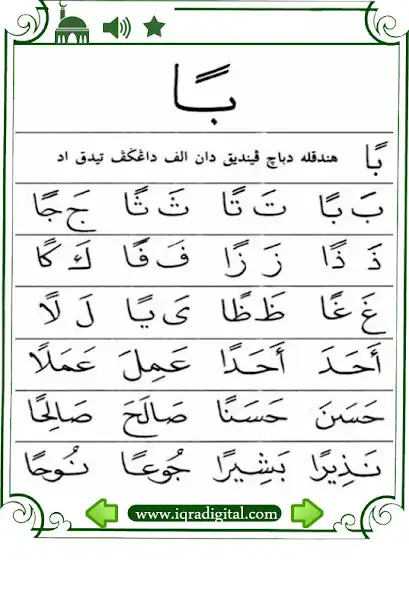 بًا
بًا هندقله دباچ ڤينديق دان الف داڠݢڤ تيدق اد
بَ بًا تَ تًا ثَ ثًا جَ جًا
ذَ ذًا زَ زًا فَ فًا كَ كًا
غَ غًا ظَ ظًا ىَ يًا لَ لًا
أَحَدَ أَحَدًا عَمِلَ عَمَلًا
حَسَنَ حَسَنًا صَالَحَ صَالِحًا
نَذِيرًا بَشِيرًا جُوعًا نُوحًا
www.iqradigital.com